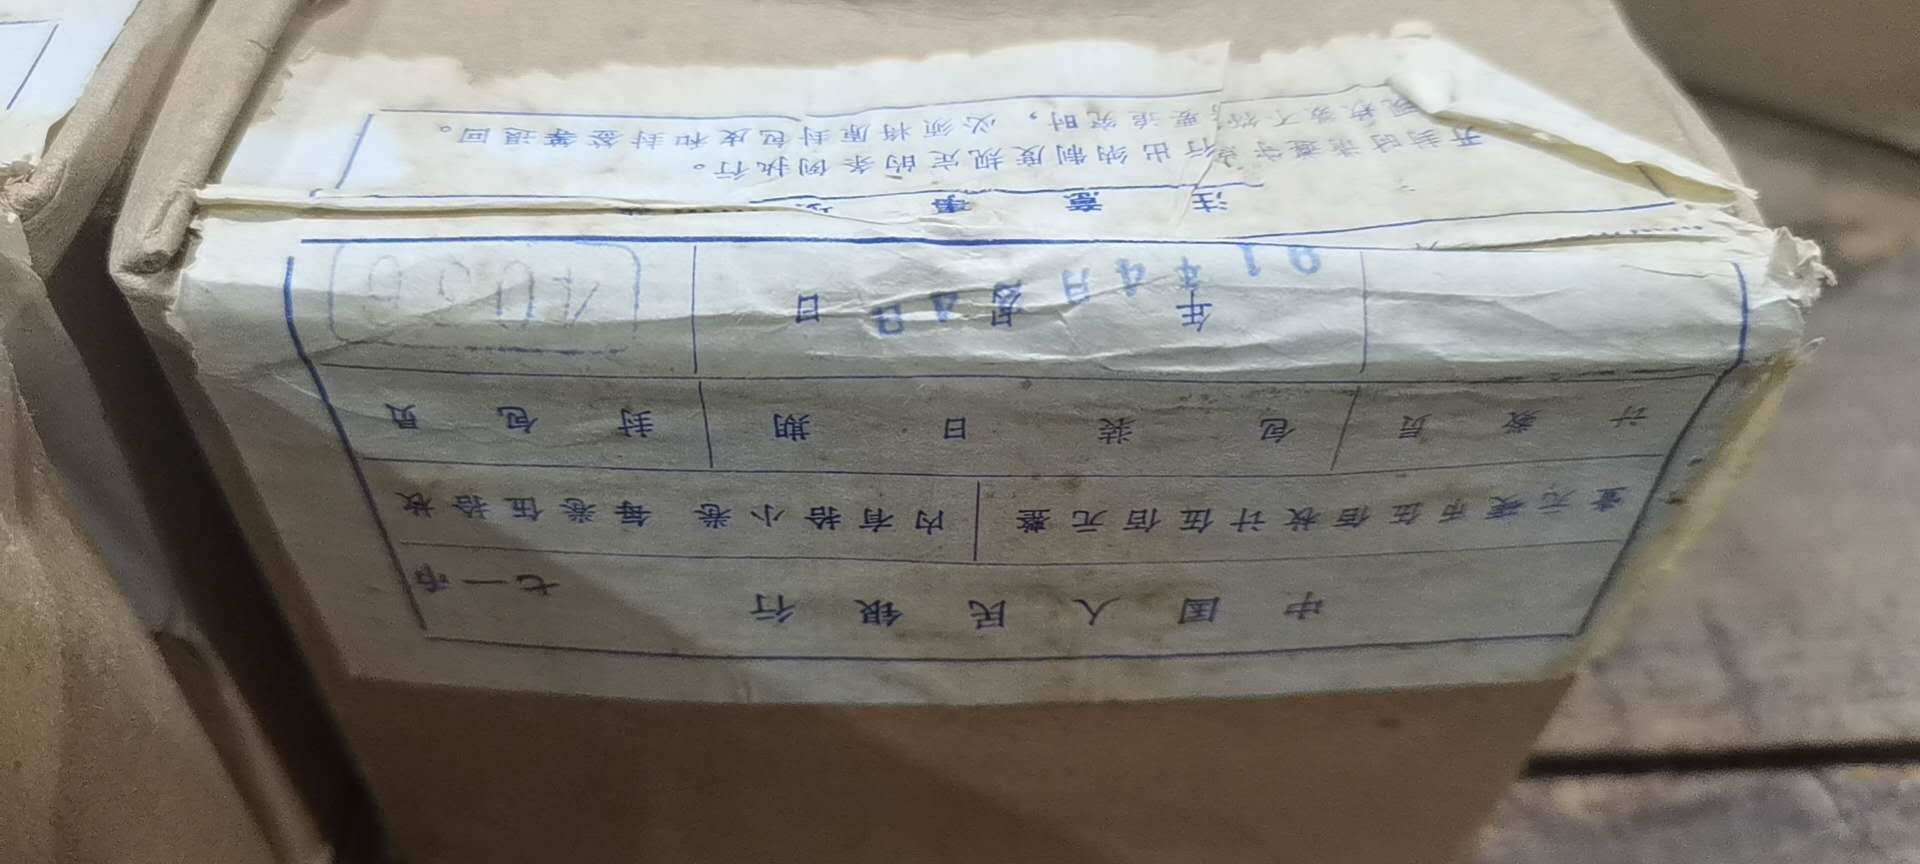 中国人民银行 七一币
壹元硬币伍佰枚计伍佰元整 内有拾小卷 每卷伍拾枚
计数员 包装日期 封包员
年 月 日
91年4月
注意事
开封时请遵守总行出纳制度规定的条例执行。
数不符，要追究时，必须将原封包皮和封签等退回。